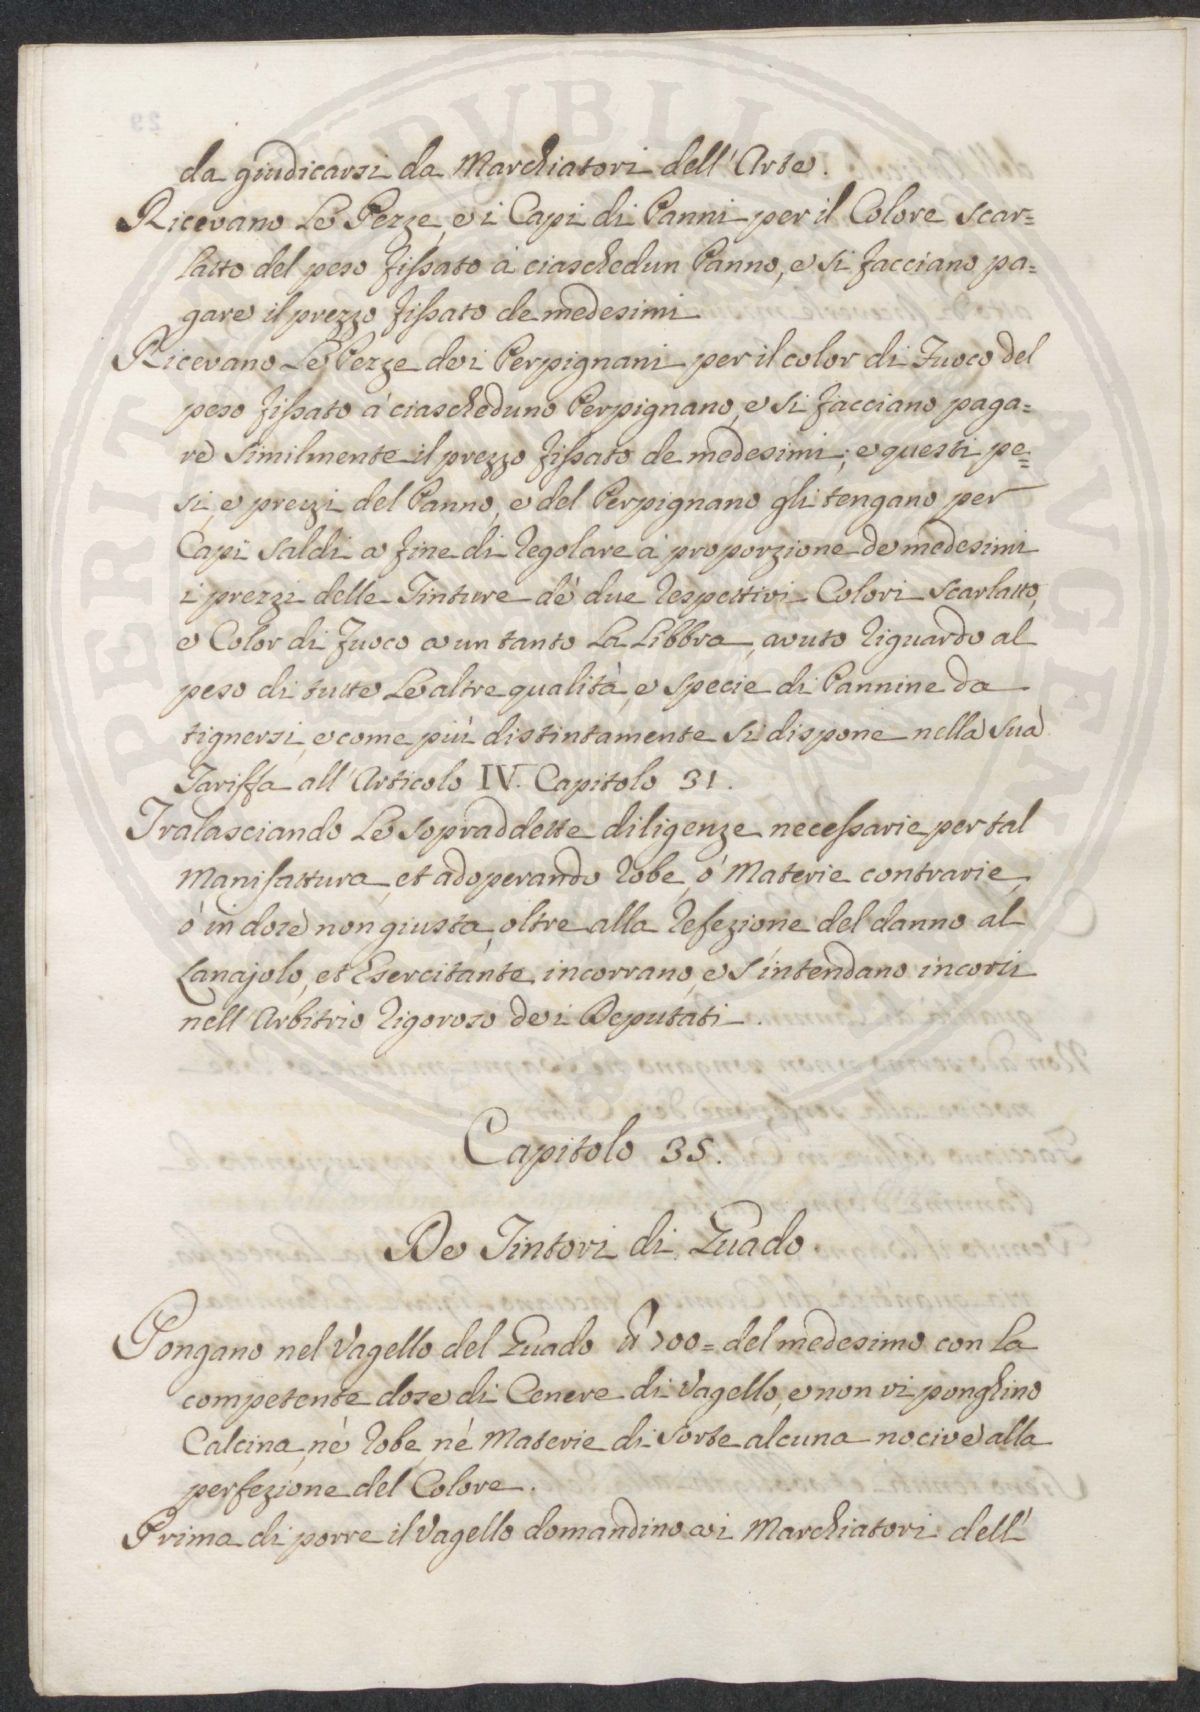 da giudicarsi da Marchiatori dell'Arte.
Ricevano Le Pezze, e i Capi di Panni per il Colore scar=
latto del peso fissato à ciaschedun Panno, e si facciano pa=
gare il prezzo fissato de medesimi
Ricevano Le Pezze dei Perpignani per il color di Fuoco del
peso fissato à ciascheduno Perpignano, e si facciano paga=
re similmente il prezzo fissato de medesimi; e questi pe=
si, e prezzi del Panno, e del Perpignano gli tengano per
Capi saldi a fine di regolare à proporzione de medesimi
i prezzi delle Tinture dè due respettivi Colori scarlatto,
e Color di fuoco a un tanto La Libbra, avuto riguardo al
peso di tutte Le altre qualità, e specie di Pannine da
tignersi, e come più distintamente si dispone nella sua
Tariffa all'Articolo IV. Capitolo 31.
Tralasciando Le sopraddette diligenze necessarie per tal
Manifattura, et adoperando robe, ò Materie contrarie,
ò in dose non giusta, oltre alla refezione del danno al
Lanajolo, et Esercitante, incorrano, e s'intendano incorsi
nell'Arbitrio rigoroso dei Deputati.
Capitolo 35.
De Tintori di Guado.
Pongano nel Vagello del Guado ℔ 700= del medesimo con La
competente dose di Cenere di Vagello, e non vi ponghino
Calcina, nè robe, nè Materie di sorte alcuna nocive alla
perfezione del Colore.
Prima di porre il Vagello domandino ai Marchiatori dell'
PERITI PVBLICO AVGET